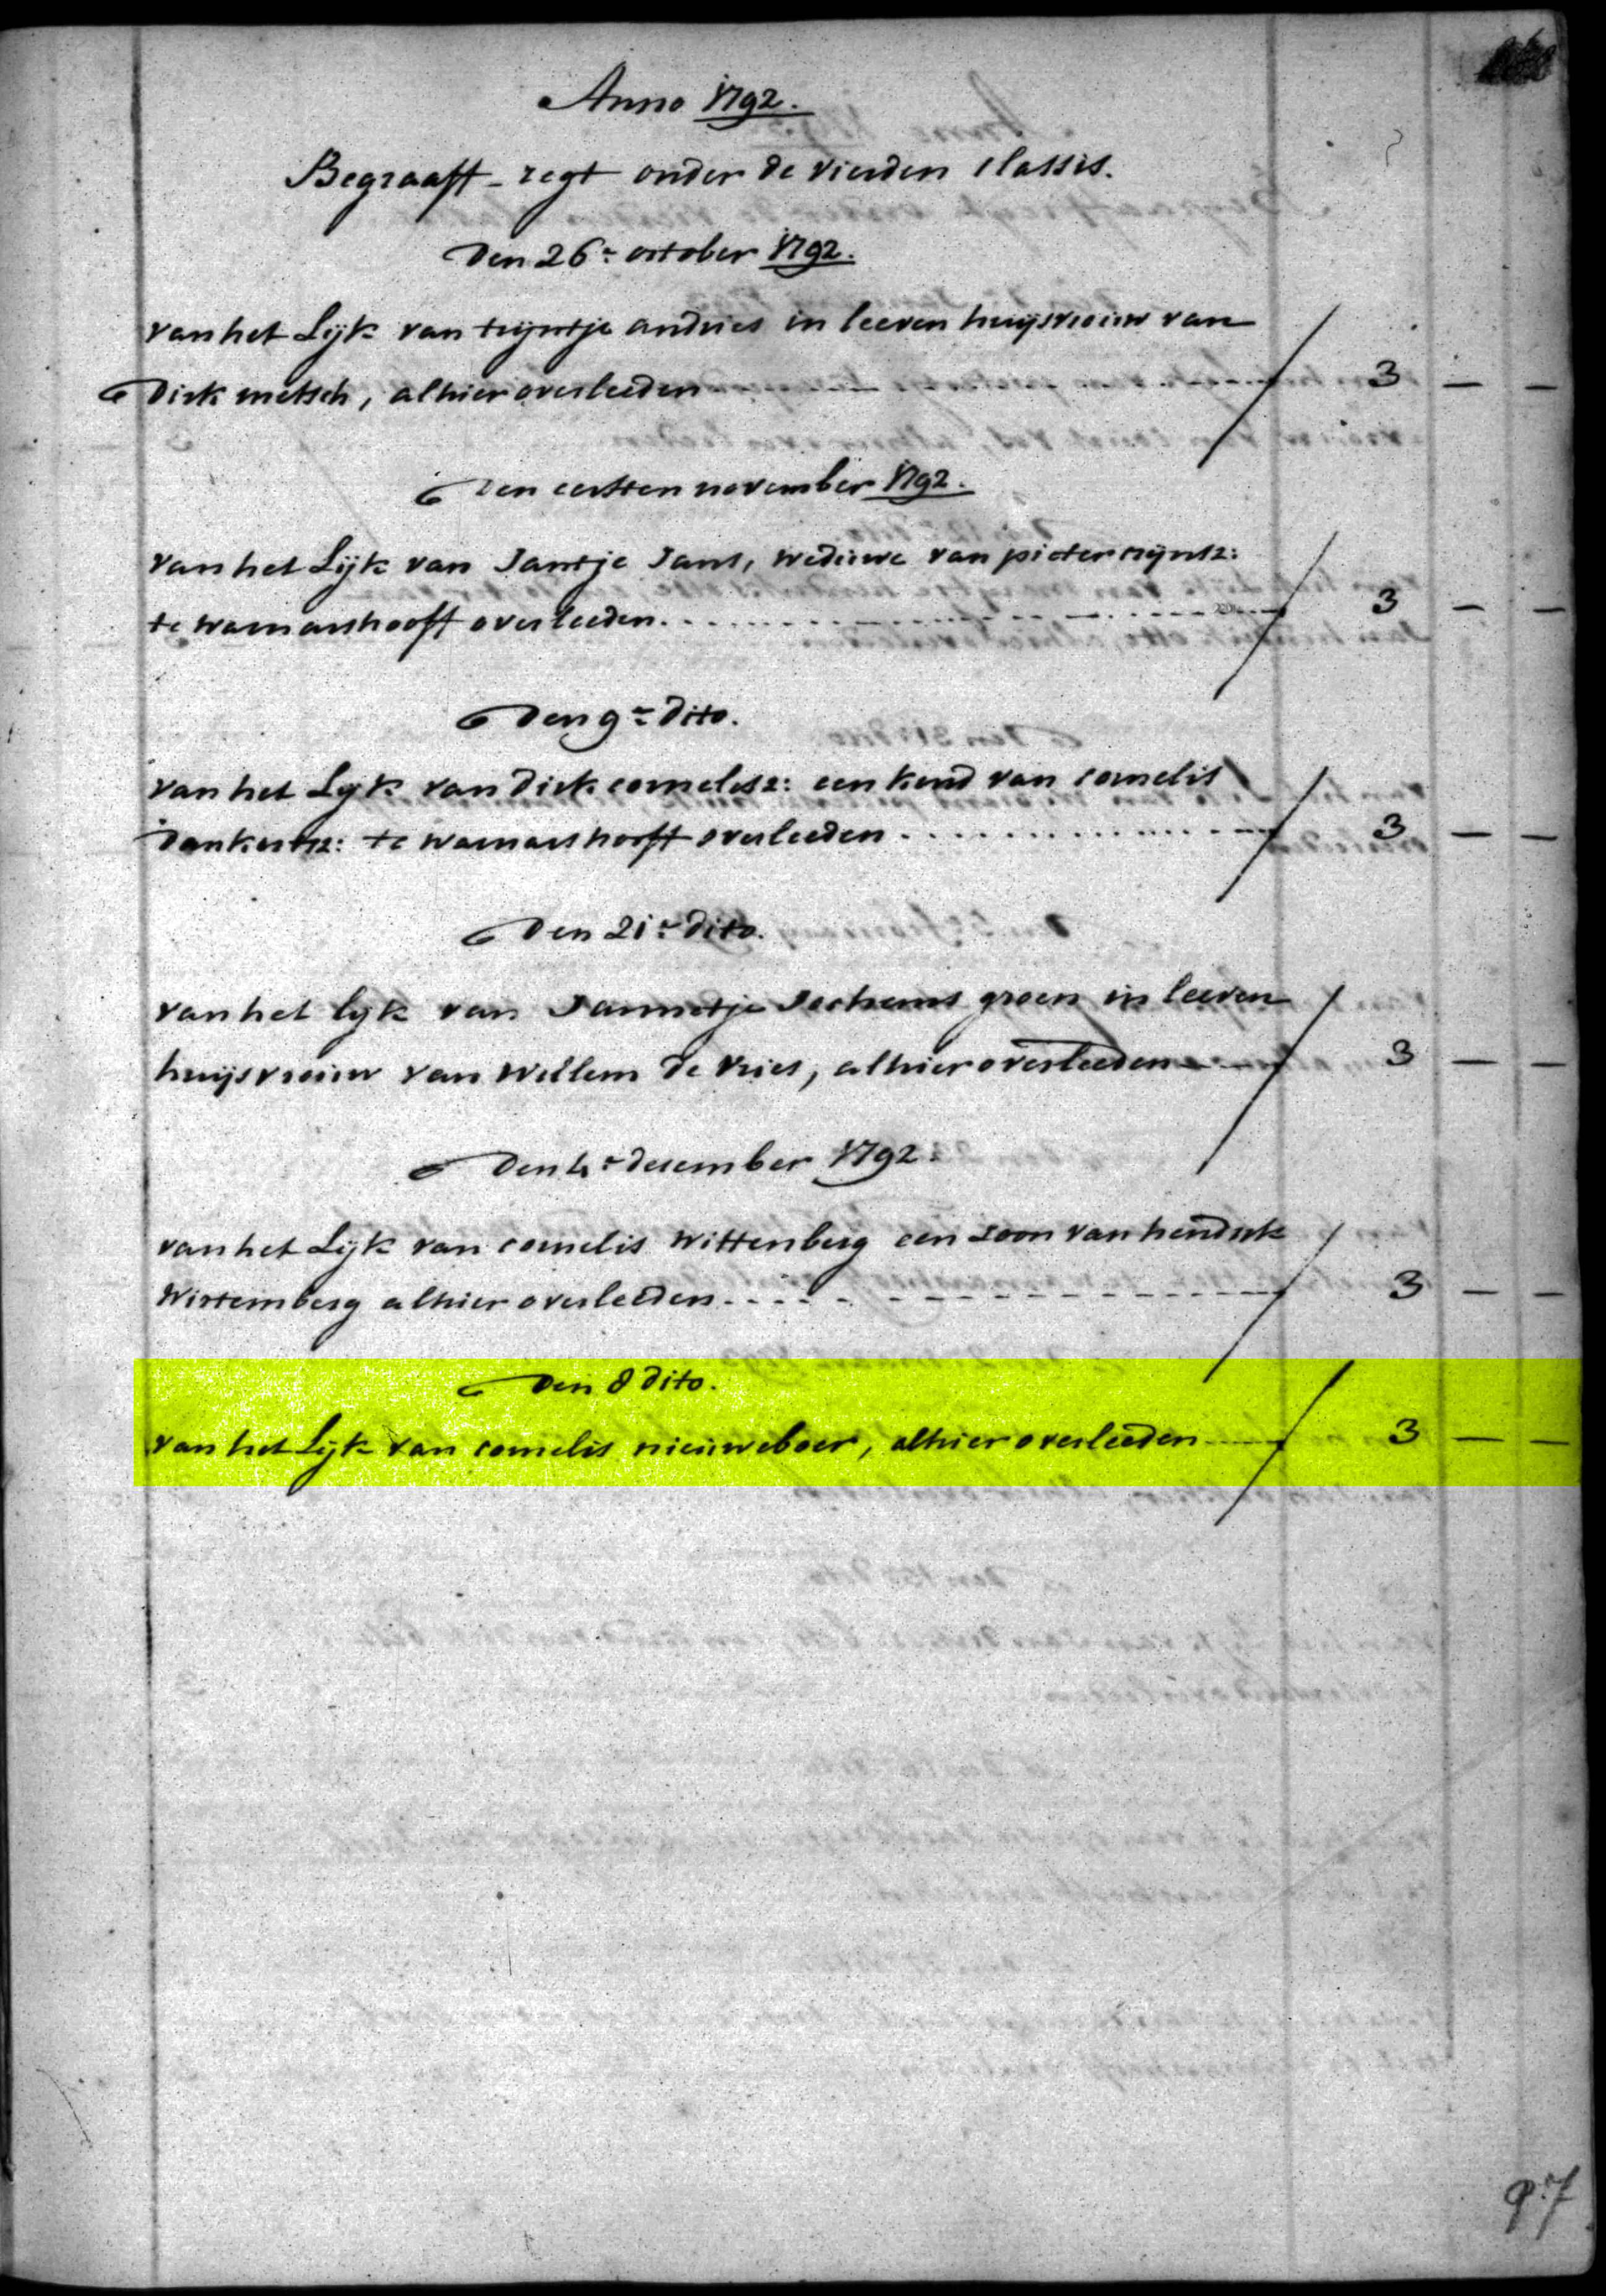 Anno 1792.
Begraaft-regt onder de vierden classis.
Den 26:e october 1792.
van het Lijk van trijntje andries in leeven huijsvrouw van
Dirk metsch, alhier overleeden 3 — —
Den eersten november 1792.
van het Lijk van Jantje Jans, weduwe van pieter rijnsz:
te warnarshooft overleeden 3 — —
Den 9:e dito.
van het Lijk van Dirk cornelisz: een kend van cornelis
Dankertsz: te warnarshooft overleeden 3 — —
Den 21:e dito.
van het lijk van Jannetje Jochems groen in leeven
huijsvrouw van Willem de vries, alhier overleeden 3 — —
Den 4:e desember 1792.
van het Lijk van cornelis Wittenberg een soon van hendrik
Wirtemberg alhier overleeden 3 — —
Den 8 dito.
van het Lijk van cornelis nieuweboer, alhier overleeden 3 — —
97